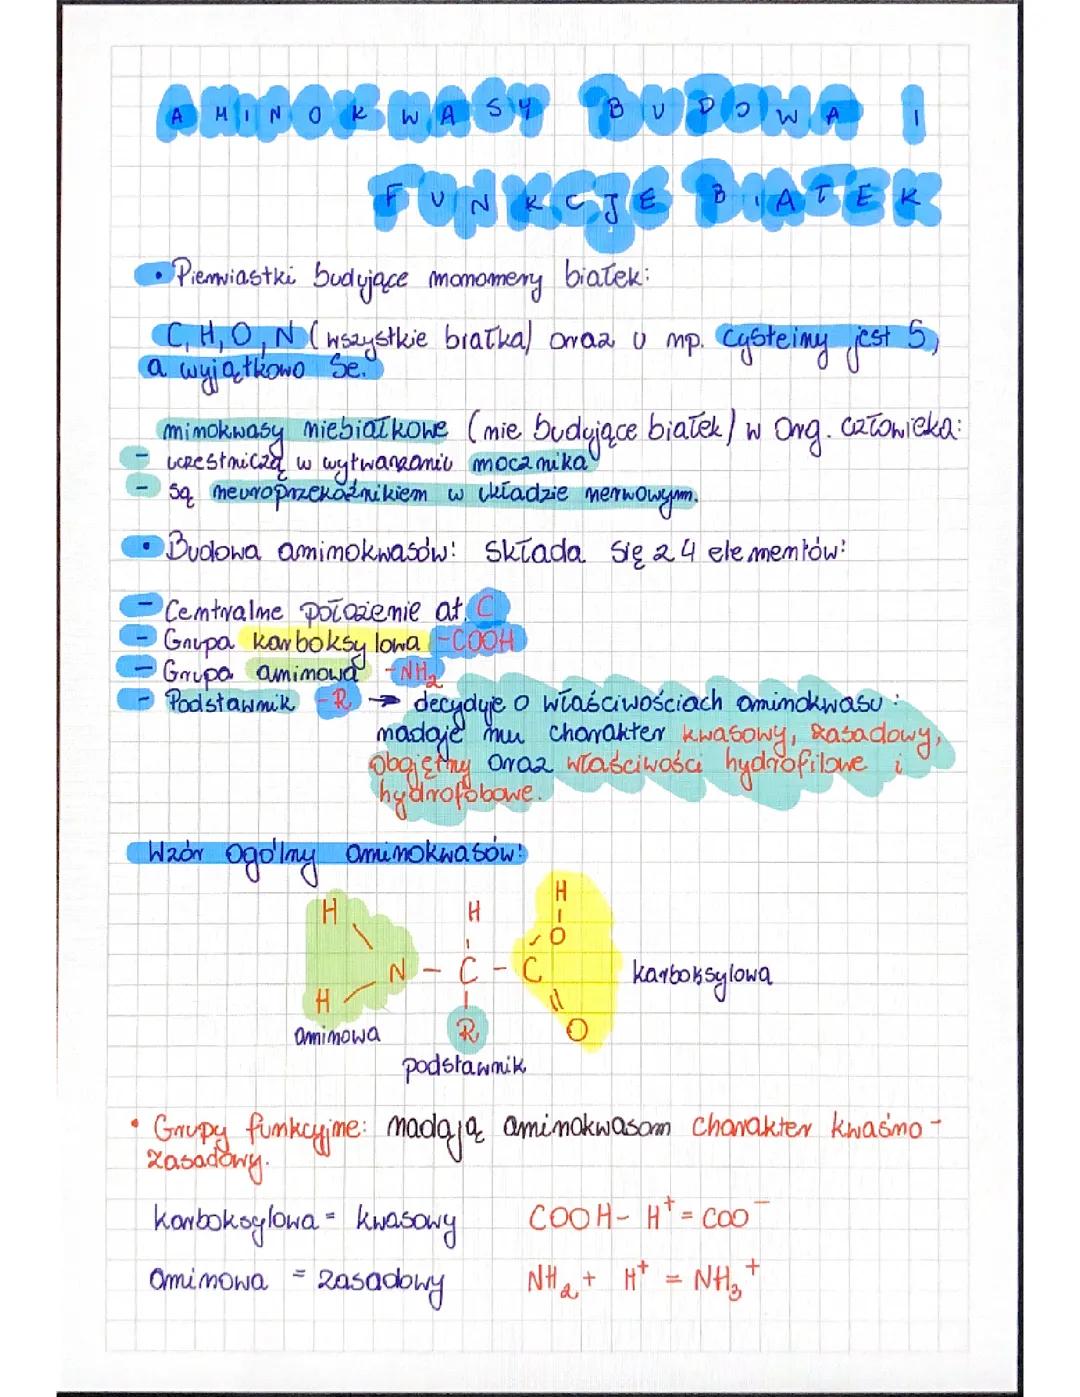 AMINOKWASY BUDOWA I
FUNKCJE BIAŁEK
• Pierwiastki budujące monomery białek:
C, H, O, N (wszystkie białka) oraz u np. cysteiny jest S,
a wyjątkowo Se.
minokwasy niebiałkowe (nie budujące białek) w org. człowieka:
- uczestniczą w wytwarzaniu mocznika
- są neuroprzekaźnikiem w układzie nerwowym.
• Budowa aminokwasów: składa się z 4 elementów:
- Centralne położenie at. C
- Grupa karboksylowa -COOH
- Grupa aminowa -NH₂
- Podstawnik -R → decyduje o właściwościach aminokwasu:
nadaje mu charakter kwasowy, zasadowy,
obojętny oraz właściwości hydrofilowe i
hydrofobowe.
Wzór ogólny aminokwasów:
H
H H
O
N - C - C karboksylowa
H
aminowa R O
podstawnik
• Grupy funkcyjne: nadają aminokwasom charakter kwaśno-
zasadowy.
karboksylowa = kwasowy COOH - H⁺ = COO⁻
aminowa = zasadowy NH₂ + H⁺ = NH₃⁺